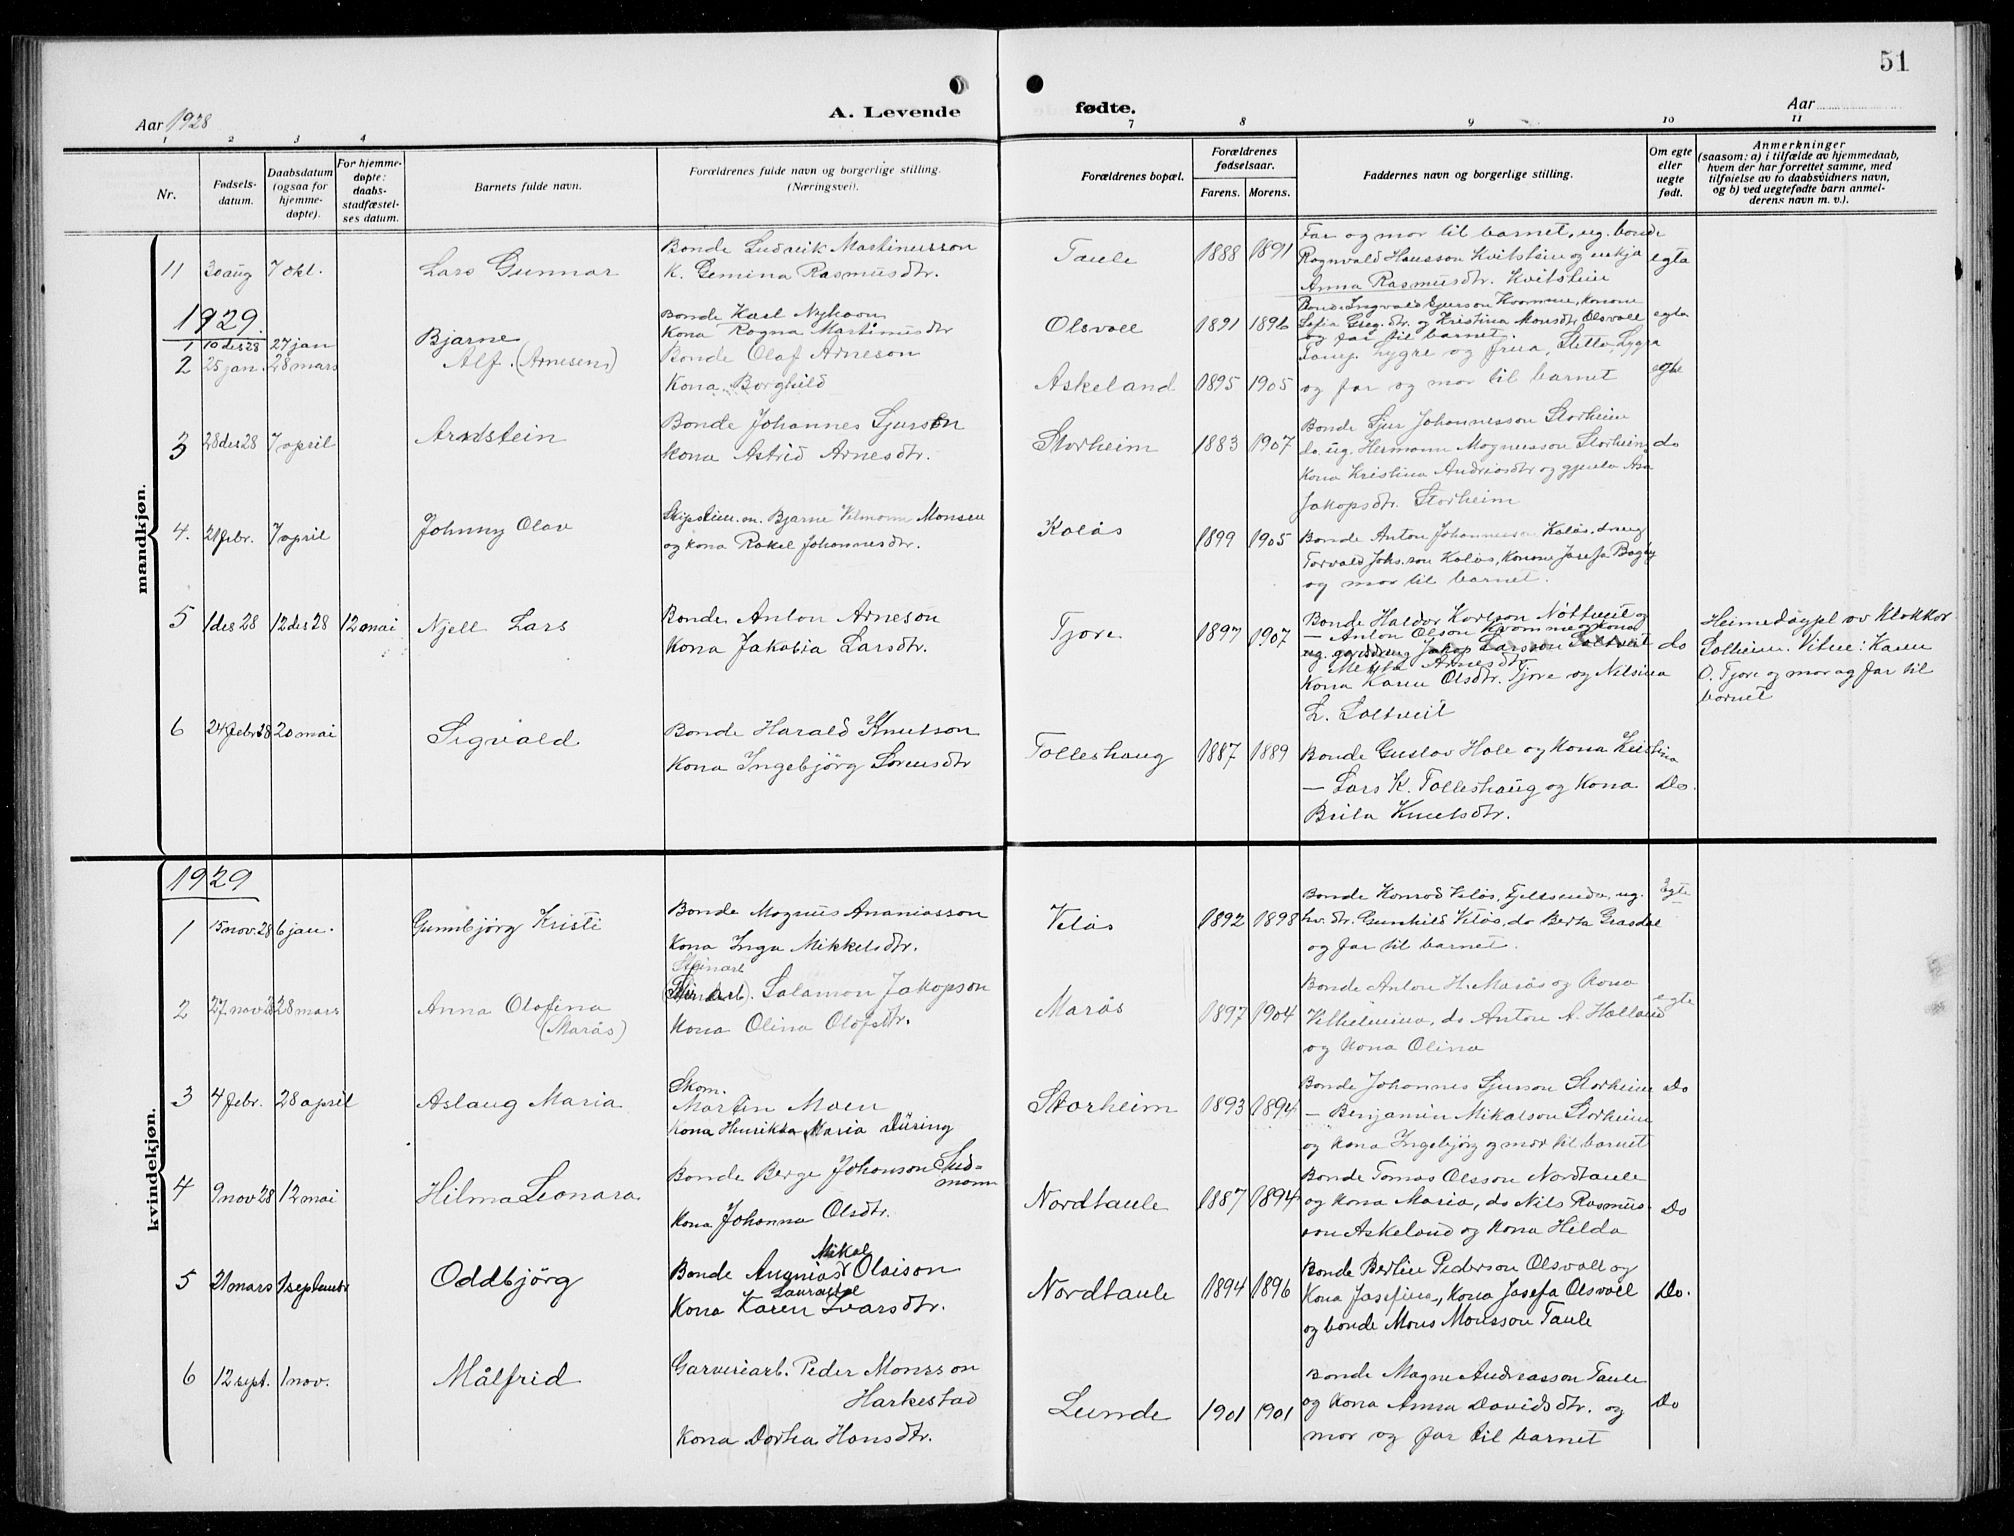 51
Aar 1928
A. Levende
fødte.
Aar
1 2 3 4 7 8 9 10 11
Nr.
Fødsels-
datum.
Daabsdatum
(ogsaa for
hjemme-
døpte).
For hjemme-
døpte:
daabs-
stadfæstel-
ses datum.
Barnets fulde navn.
Forældrenes fulde navn og borgerlige stilling.
(Næringsvei).
Forældrenes bopæl.
Forældrenes
fødselsaar.
Farens. Morens.
Faddernes navn og borgerlige stilling.
Om egte
eller
uegte
født.
Anmerkninger
(saasom: a) i tilfælde av hjemmedaab,
hvem der har forrettet samme, med
tilføielse av to daabsvidners navn,
og b) ved uegtefødte barn anmel-
derens navn m. v.).
mandkjøn.
11 30 aug 7 okt. Lars Gunnar
Bonde Ludavik Martinusson
K. Gemina Rasmusdtr.
Taule 1888 1891
Far og mor til barnet, ug. bonde
Rognvald Hansson Kvitstein og enkja
Anna Rasmusdtr. Kvitstein
egta
1929.
1 10 des 28 27 jan Bjarne
Bonde Karl
Kona Ragna Martinusdtr
Olsvoll 1891 1896
Bonde Ingvald Sjurson Kvamme, konone
Sofia Greg.dtr. og Kristina Monsdtr Olsvoll
og far til barnet.
egta
2 25 jan. 28 mars Alf. (Arnesen)
Bonde Olaf Arneson
Kona Borghild
Askeland 1895 1905
Lygre og frua,
og far og mor til barnet
egte
3 28 des 28 7 april Arnstein
Bonde Johannes Sjurson
Kona Astrid Arnesdtr.
Storheim 1883 1907
Bonde Sjur Johannesson Storheim
do, ug. Hermann Magnusson Storheim
Kona Kristina Andreasdtr og gjenta Asa
Jakopsdtr. Storheim
do
4. 21 febr. 7 april Johnny Olav
Bjarne Monsen
og kona Rakel Johannesdtr.
Kolås 1899 1905
Bonde Anton Johannesson Kolås, dreng
Torvald Johs.son Kolås, Konone Josefa
og mor til barnet.
5 1 des 28 12 des 28 12 mai Njell Lars
Bonde Anton Arneson
Kona Jakobia Larsdtr.
Tjore 1897 1907
Bonde Haldor Karlson Nøttveit og
— Anton Olson Kvamme og kona
ug. gardsdreng Jakop Larsson Soltveit
Arnesdtr
Kona Karen Olsdtr. Tjore og Nilsina
L. Soltveit
do
Heimedøypt av Klokkar
Solheim. Vitne: Karen
O. Tjore og mor og far til
barnet
6 24 febr 28 20 mai Sigvald
Bonde Harald Knutson
Kona Ingebjörg Sörensdtr
Tolleshaug 1887 1889
Bonde Gustav Hole og kona Kristina
— Lars K. Tolleshaug og kona
Brita Knutsdtr.
Do.
kvindekjøn.
1929
1 15 nov. 28 6 jan. Gunnbjörg Kristi
Bonde Magnus Ananiasson
Kona Inga Mikkelsdtr.
Velås 1892 1898
Bonde Konrad Velås, ug.
hv. dtr. Gunhild Velås, do Berta
og far til barnet.
Egte
2 27 nov 28 28 mars Anna Olofina
(Marås)
Steinarb
Salamon Jakopson
Kona Olina Olofsdtr.
Marås 1897 1904
Bonde Anton H. Marås og kona
Vilhelmina, do Anton A. Halland
og kona Olina
egte
3 4 febr. 28 april Aslaug Maria
Skom.
Martin Moen
Kona Henrikka Maria Düring
Storheim 1893 1894
Bonde Johannes Sjurson Storheim
— Benjamin Mikalson Storheim
og kona Ingebjörg og mor til barnet
Do
4 9 nov 28 12 mai Hilma Leonara
Bonde Berge Johanson Sud-
mann
Kona Johanna Olsdtr.
Nordtaule 1887 1894
Bonde Tomas Olsson Nordtaule
og kona Maria, do Nils Rasmus-
son Askeland og kona Helda
Do
5 21 mars 1 september Oddbjörg
Mikal
Bonde Ananias Olaison
Kona Karen Ivarsdtr.
Nordtaule 1894 1896
Bonde Bertin Pederson Olsvoll og
Kona Josefina, Kona Josefa Olsvoll
og bonde Mons Monsson Taule
Do.
6 12 sept. 1 nov. Målfrid
Garveriarb. Peder Monsson
Harkestad
Kona Dorthea Hansdtr.
Lunde 1901 1901
Bonde Magne Andreasson Taule
og kona Anna Davidsdtr. og
mor og far til barnet
Do